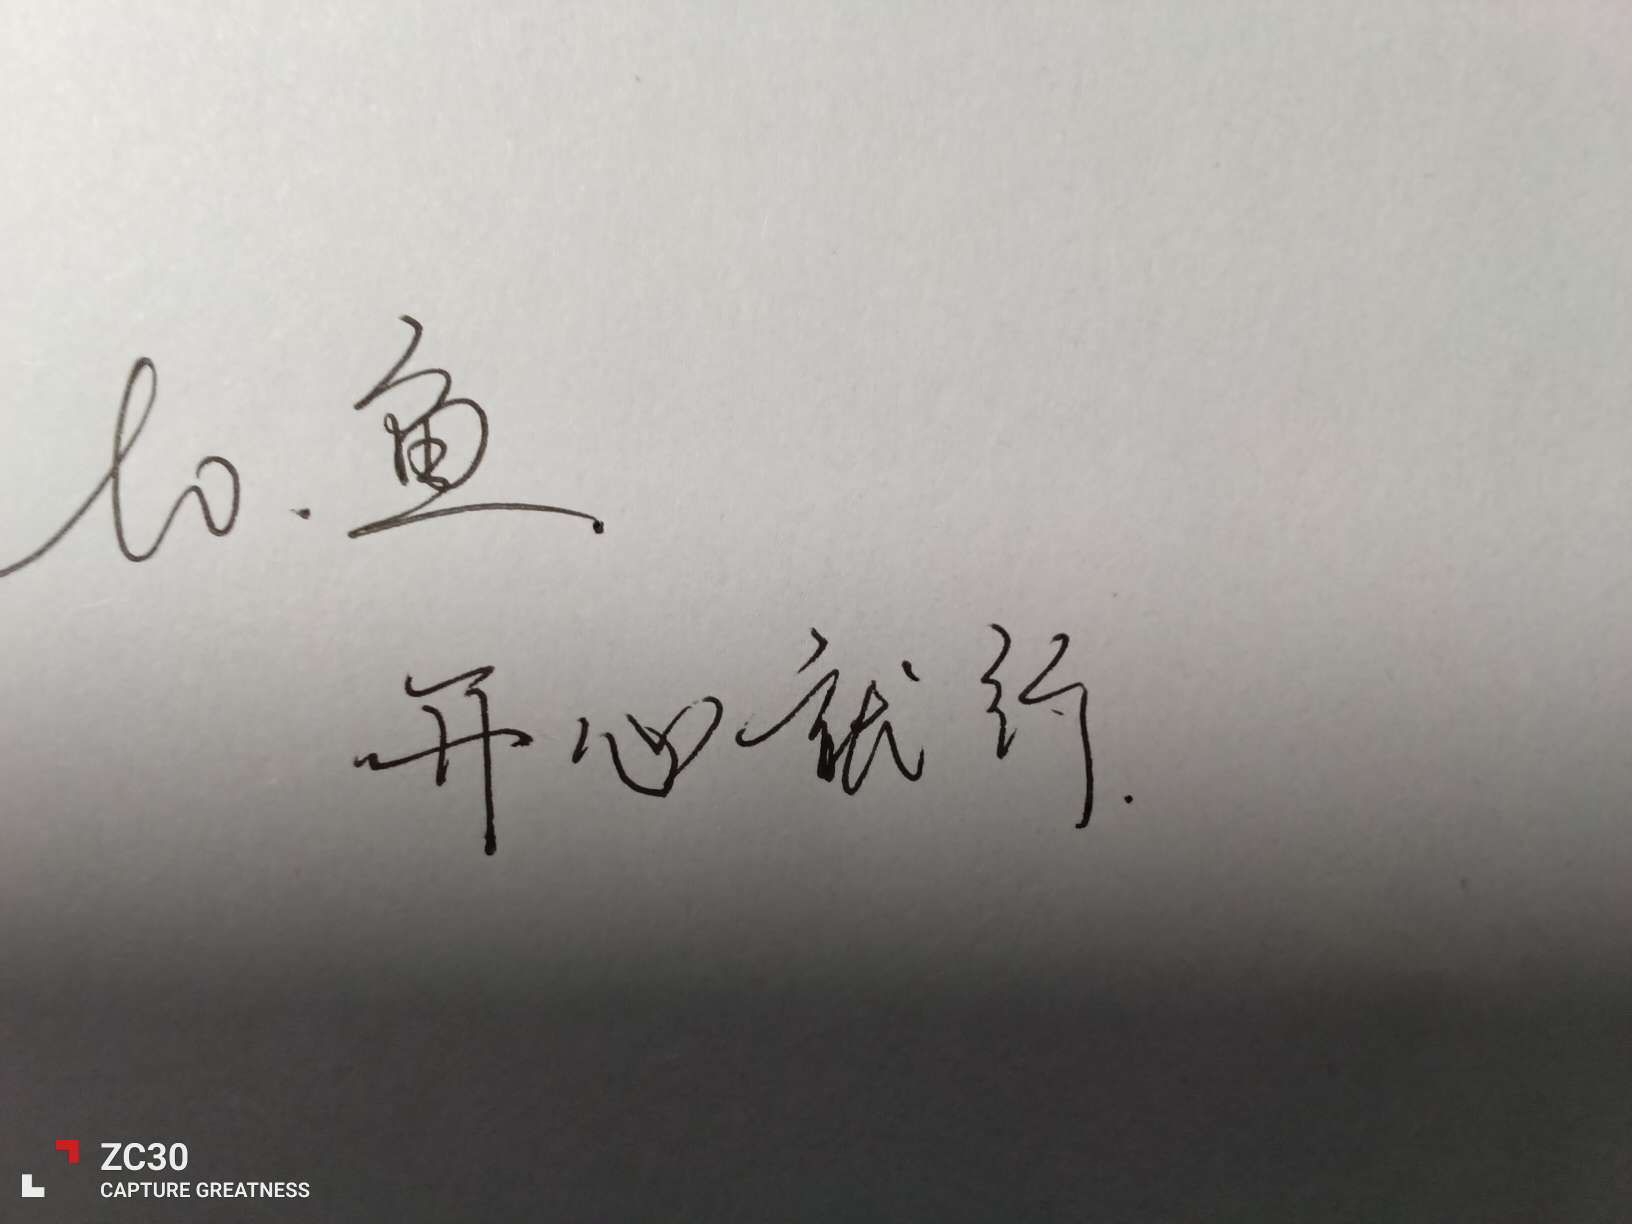 to.鱼
开心就行.
ZC30
CAPTURE GREATNESS